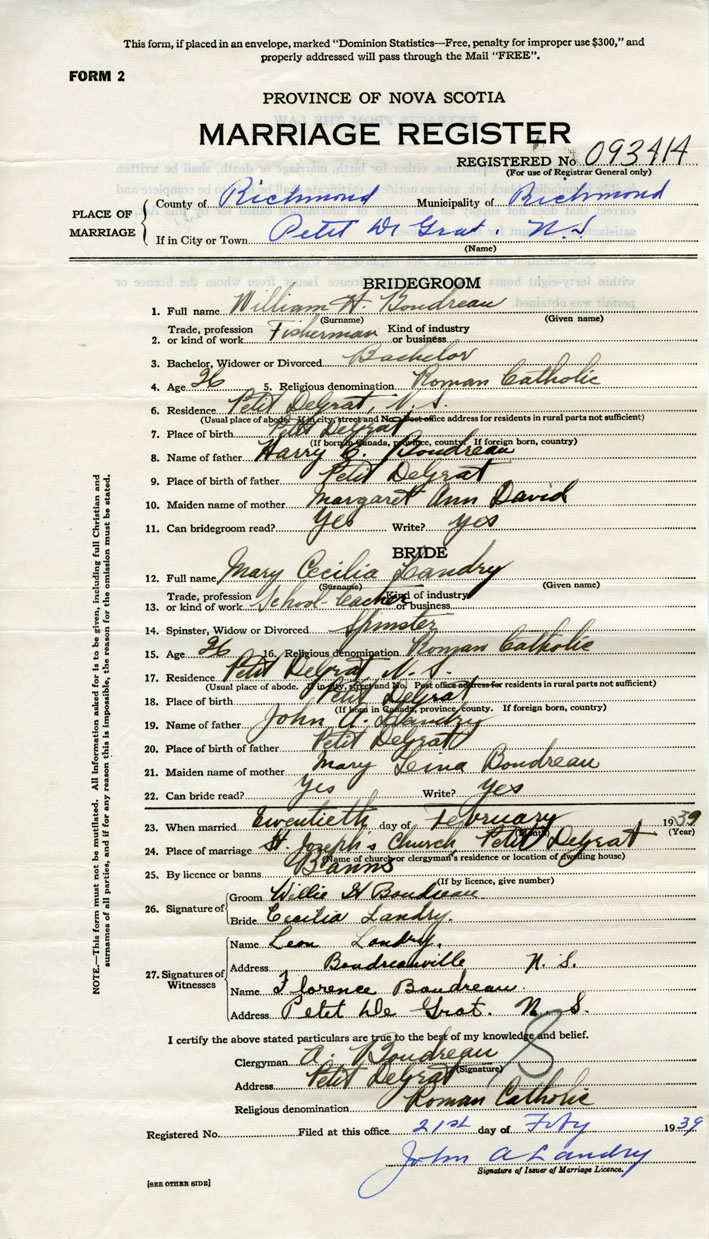 This form, if placed in an envelope, marked "Dominion Statistics—Free, penalty for improper use $300," and
properly addressed will pass through the Mail "FREE".
FORM 2
PROVINCE OF NOVA SCOTIA
MARRIAGE REGISTER
REGISTERED No 093414
(For use of Registrar General only)
PLACE OF MARRIAGE
County of Richmond Municipality of Richmond
If in City or Town Petit De Grat. N.S
(Name)
BRIDEGROOM
1. Full name William H. Boudreau
(Surname) (Given name)
2. Trade, profession or kind of work Fisherman Kind of industry or business
3. Bachelor, Widower or Divorced Bachelor
4. Age 26 5. Religious denomination Roman Catholic
6. Residence Petit Degrat, N.S.
(Usual place of abode. If in city, street and No. Post office address for residents in rural parts not sufficient)
7. Place of birth Petit Degrat
(If born in Canada, province, county. If foreign born, country)
8. Name of father Harry C. Boudreau
9. Place of birth of father Petit Degrat
10. Maiden name of mother Margaret Ann David
11. Can bridegroom read? Yes Write? Yes
BRIDE
12. Full name Mary Cecilia Landry
(Surname) (Given name)
13. Trade, profession or kind of work School-teacher Kind of industry or business
14. Spinster, Widow or Divorced Spinster
15. Age 26 16. Religious denomination Roman Catholic
17. Residence Petit Degrat N.S.
(Usual place of abode. If in city, street and No. Post office address for residents in rural parts not sufficient)
18. Place of birth Petit Degrat
(If born in Canada, province, county. If foreign born, country)
19. Name of father John A. Landry
20. Place of birth of father Petit Degrat
21. Maiden name of mother Mary Boudreau
22. Can bride read? Yes Write? Yes
23. When married Twentieth day of February 1939
(Month) (Year)
24. Place of marriage St. Joseph's Church, Petit Degrat
(Name of church or clergyman's residence or location of dwelling house)
25. By licence or banns Banns
(If by licence, give number)
26. Signature of
Groom Willie H Boudreau
Bride Cecilia Landry.
27. Signatures of Witnesses
Name Leon Landry.
Address Boudreauville N. S.
Name Florence Boudreau.
Address Petit De Grat. N. S.
I certify the above stated particulars are true to the best of my knowledge and belief.
Clergyman A. Boudreau
(Signature)
Address Petit Degrat
8
Religious denomination Roman Catholic
Registered No. Filed at this office 21st day of Feby 1939
John A Landry
Signature of Issuer of Marriage Licence.
[SEE OTHER SIDE]
NOTE.—This form must not be mutilated. All information asked for is to be given, including full Christian and
surnames of all parties, and if for any reason this is impossible, the reason for the omission must be stated.